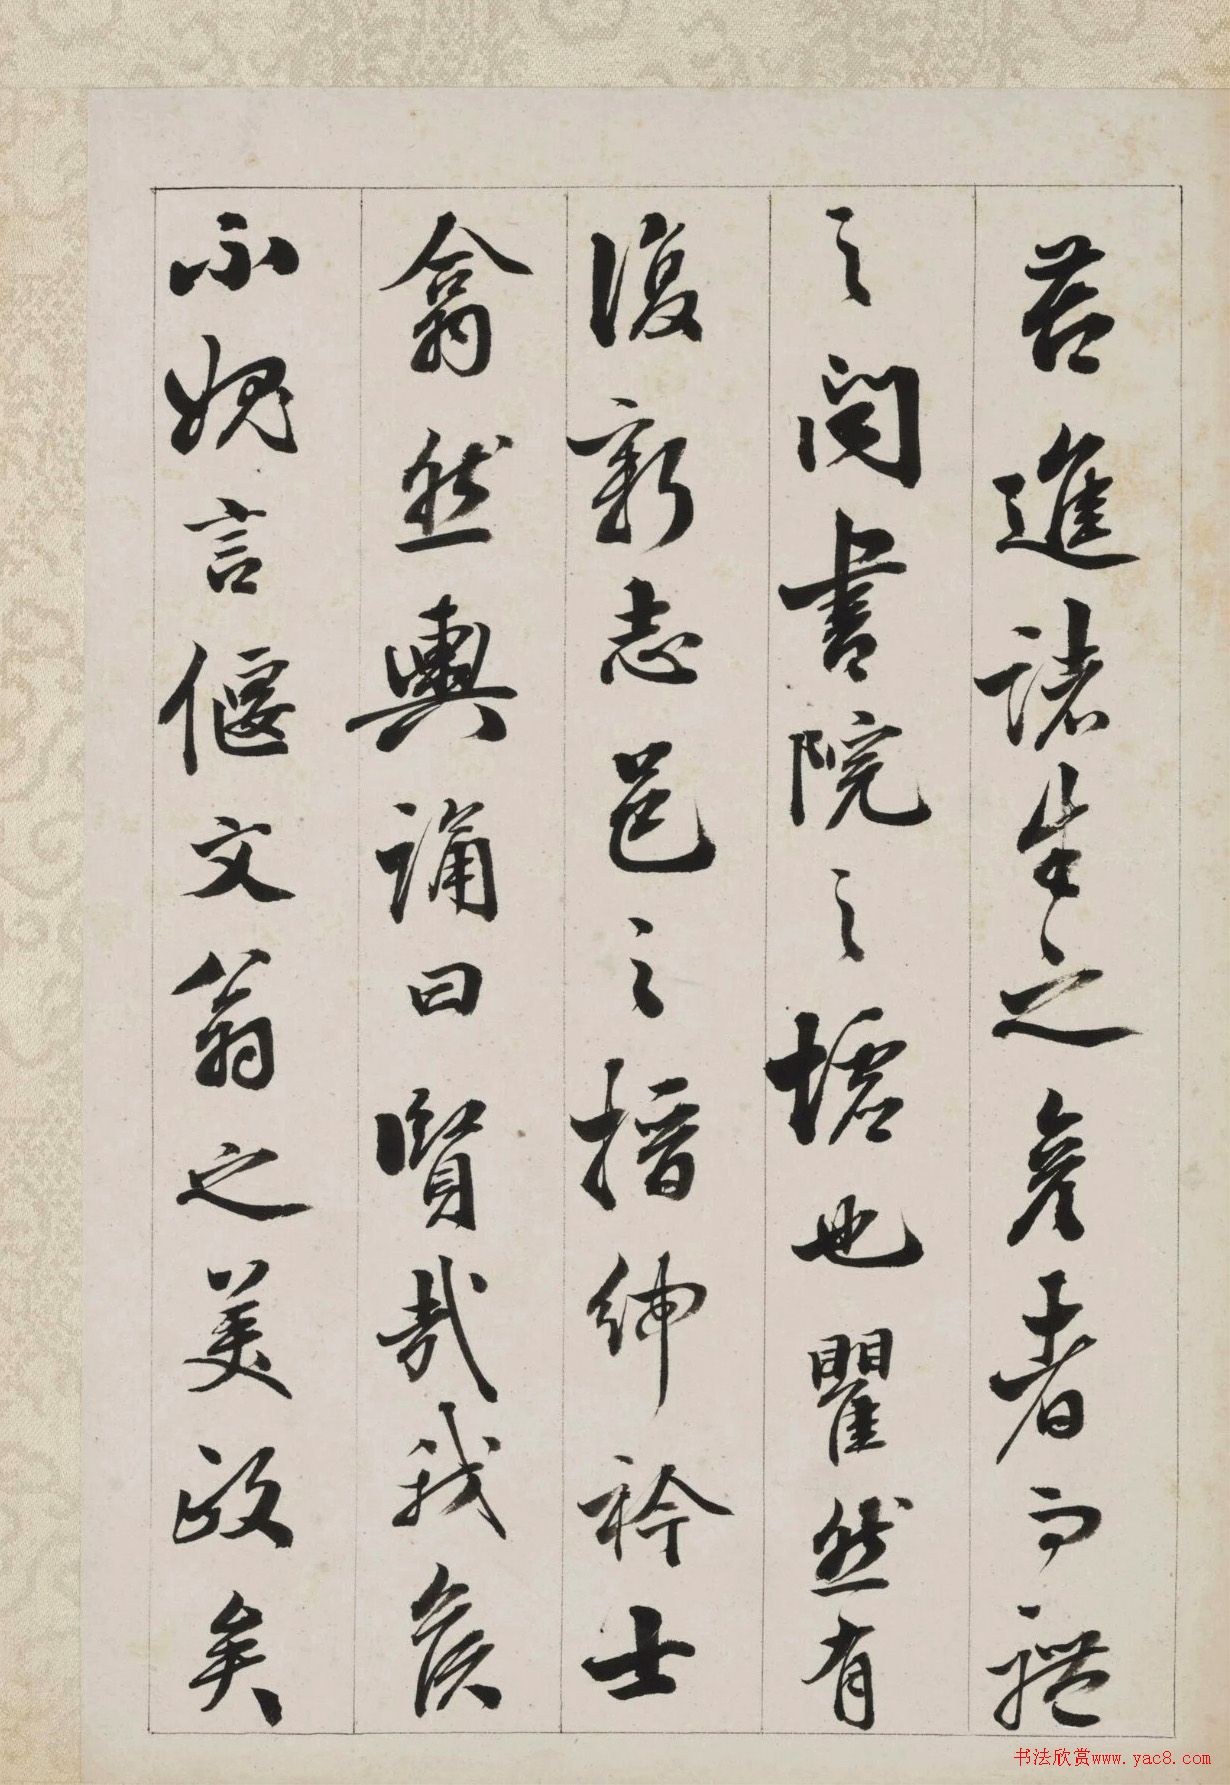 苕進諸生之彥者而禮
之閔書院之墟也瞿然有
復新志邑之搢紳衿士
翕然輿誦曰賢哉我侯
不媿言偃文翁之美政矣
书法欣赏www.yac8.com